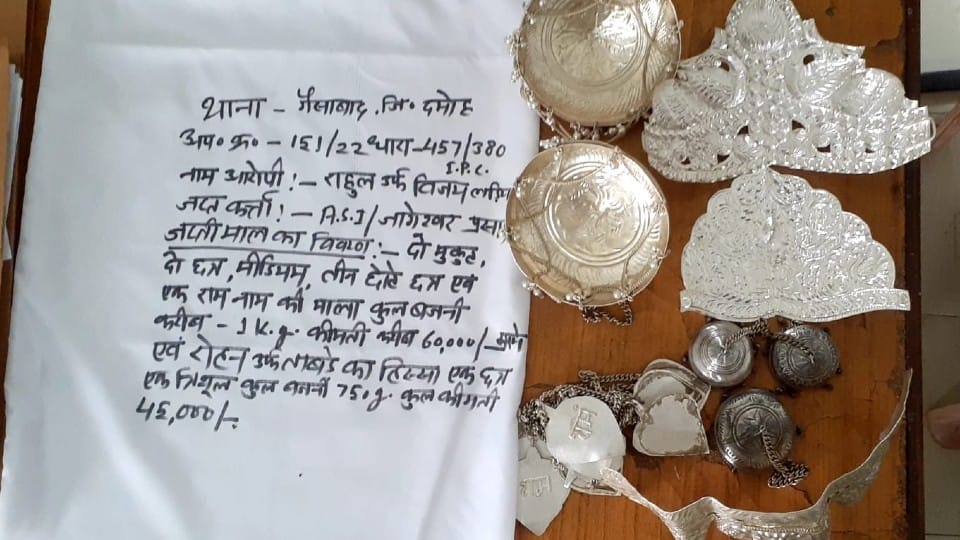 थाना - गैसाबाद. जि० दमोह
अप० क्र० - 151/22 धारा-457/380
I.P.C.
नाम आरोपी :- राहुल उर्फ विजय
जप्त कर्ता :- A.S.I/जागेश्वर प्रसा
जप्ती माल का विवरण :- दो मुकुट,
दो छत्र, मीडियम, तीन छोटे छत्र एवं
एक राम नाम की माला कुल बजनी
करीब - 1 K.g. कीमती करीब 60,000/-
एवं रोहन उर्फ का हिस्सा एक छत्र
एक त्रिशूल कुल बजनी 750g. कुल कीमती
45,000/-
राम
राम